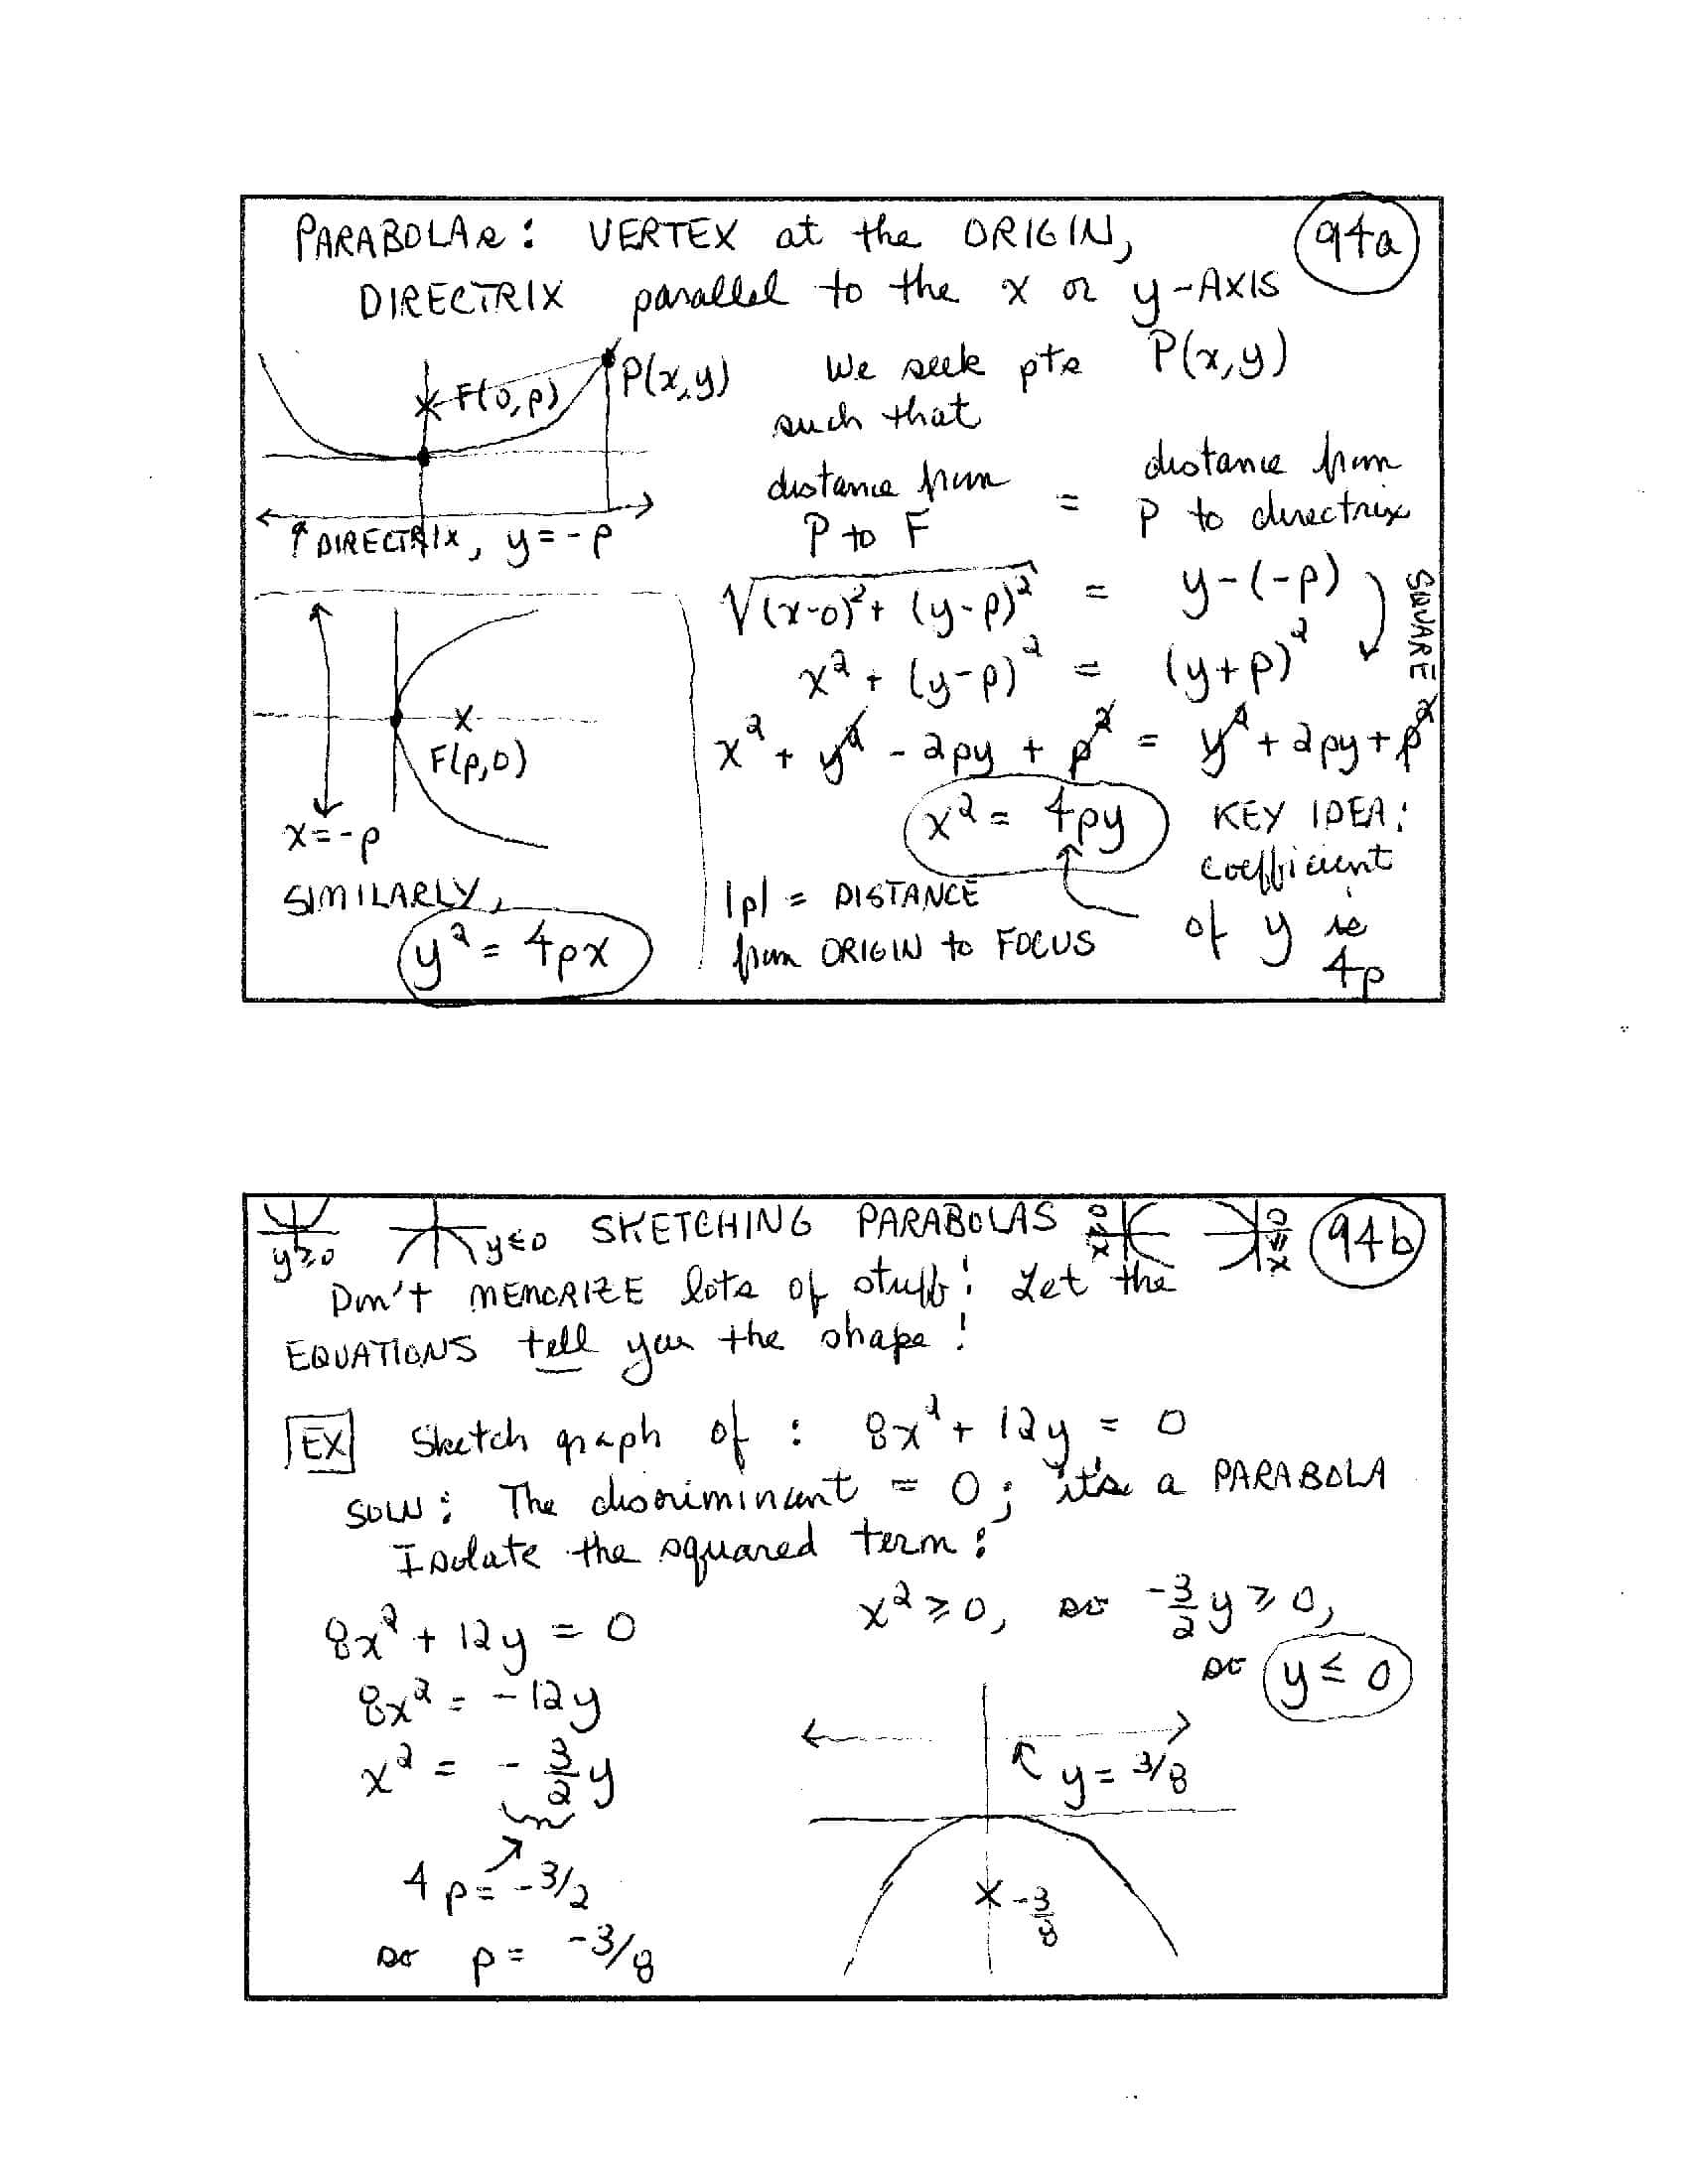 PARABOLAs: VERTEX at the ORIGIN,
94a
DIRECTRIX parallel to the x or y-AXIS
F(0,p)
P(x,y)
↑ DIRECTRIX, y = -p
We seek pts P(x,y)
such that
distance from P to F = distance from P to directrix
√((x-0)² + (y-p)²) = y-(-p)
SQUARE
x² + (y-p)² = (y+p)²
x² + y² - 2py + p² = y² + 2py + p²
x² = 4py
KEY IDEA:
coefficient
of y is
4p
|p| = DISTANCE
from ORIGIN to FOCUS
F(p,0)
x = -p
SIMILARLY,
y² = 4px
y≥0
y≤0
SKETCHING PARABOLAS
x≥0
x≤0
94b
Don't MEMORIZE lots of stuff! Let the
EQUATIONS tell you the shape!
EX Sketch graph of: 8x² + 12y = 0
SOLN: The discriminant = 0; it's a PARABOLA
Isolate the squared term:
8x² + 12y = 0
8x² = -12y
x² = -3/2 y
4p = -3/2
so p = -3/8
x² ≥ 0, so -3/2 y ≥ 0,
so y ≤ 0
y = 3/8
-3/8